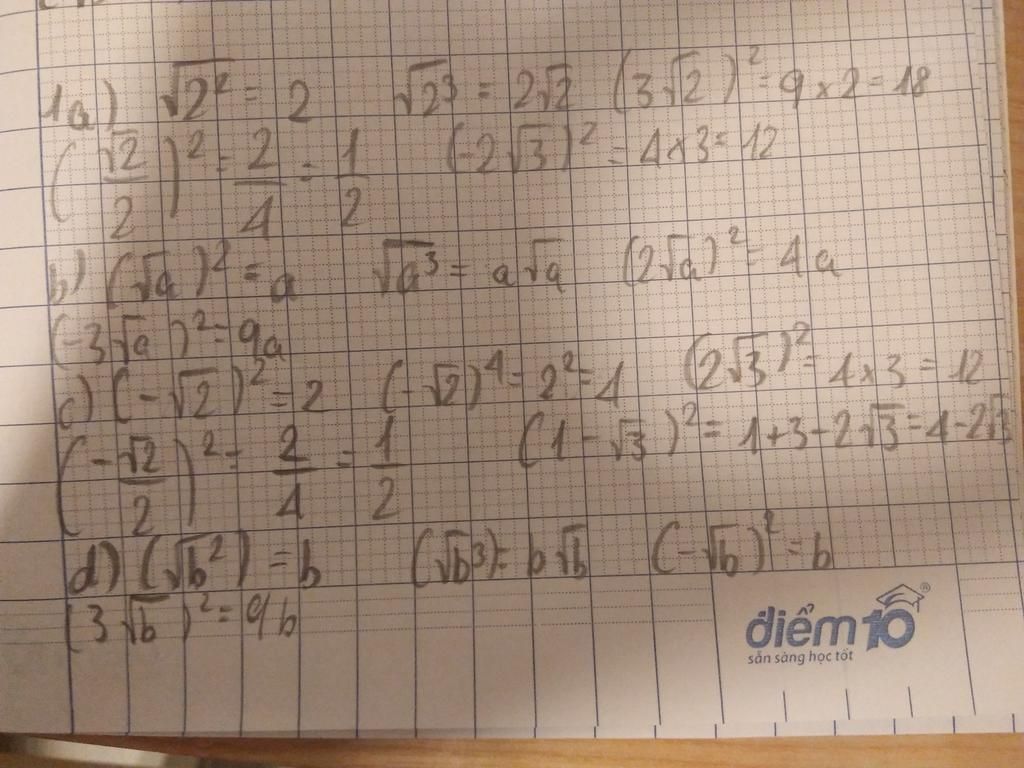 1a) √2² = 2 √2³ = 2√2 (3√2)² = 9 x 2 = 18
(√2/2)² = 2/4 = 1/2 (-2√3)² = 4x3 = 12
b) (√a)² = a √a³ = a√a (2√a)² = 4a
(-3√a)² = 9a
c) (-√2)² = 2 (-√2)⁴ = 2² = 4 (2√3)² = 4x3 = 12
(-√2/2)² = 2/4 = 1/2 (1-√3)² = 1+3-2√3 = 4-2√3
d) (√b²) = b (√b³) = b√b (-√b)² = b
(3√b)² = 9b
điểm10®
sẵn sàng học tốt